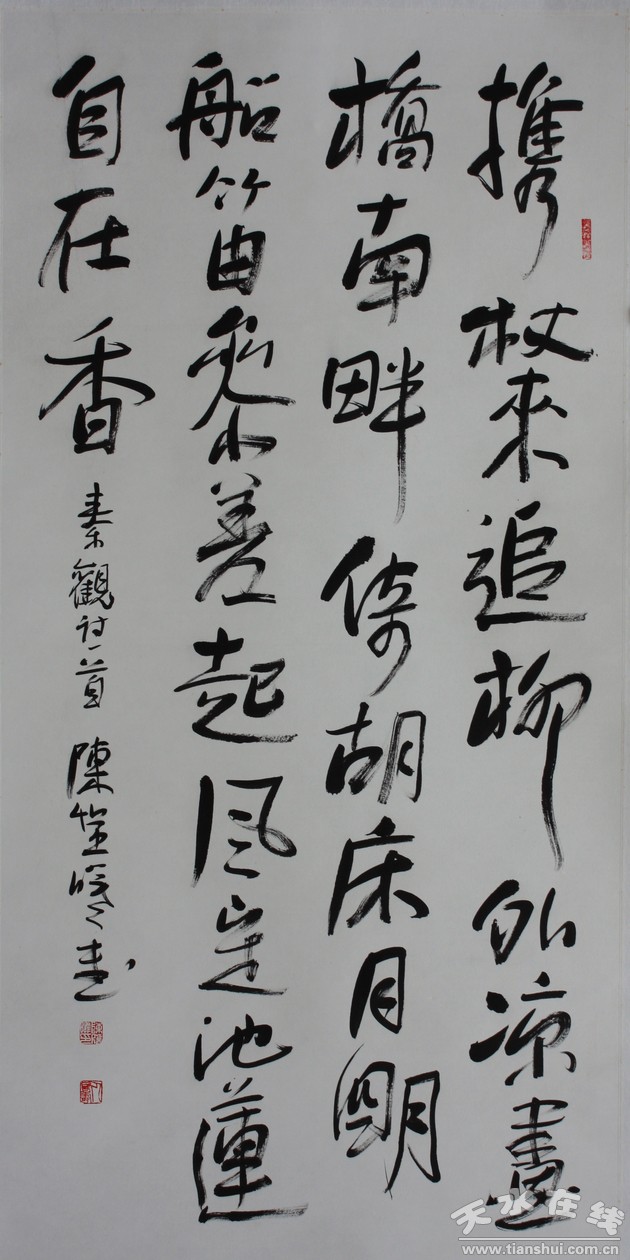 携杖來追柳外凉畫
橋南畔倚胡床月朙
船笛參差起风定池蓮
自在香
秦觀诗一首 陳 書
天水在线
www.tianshui.com.cn